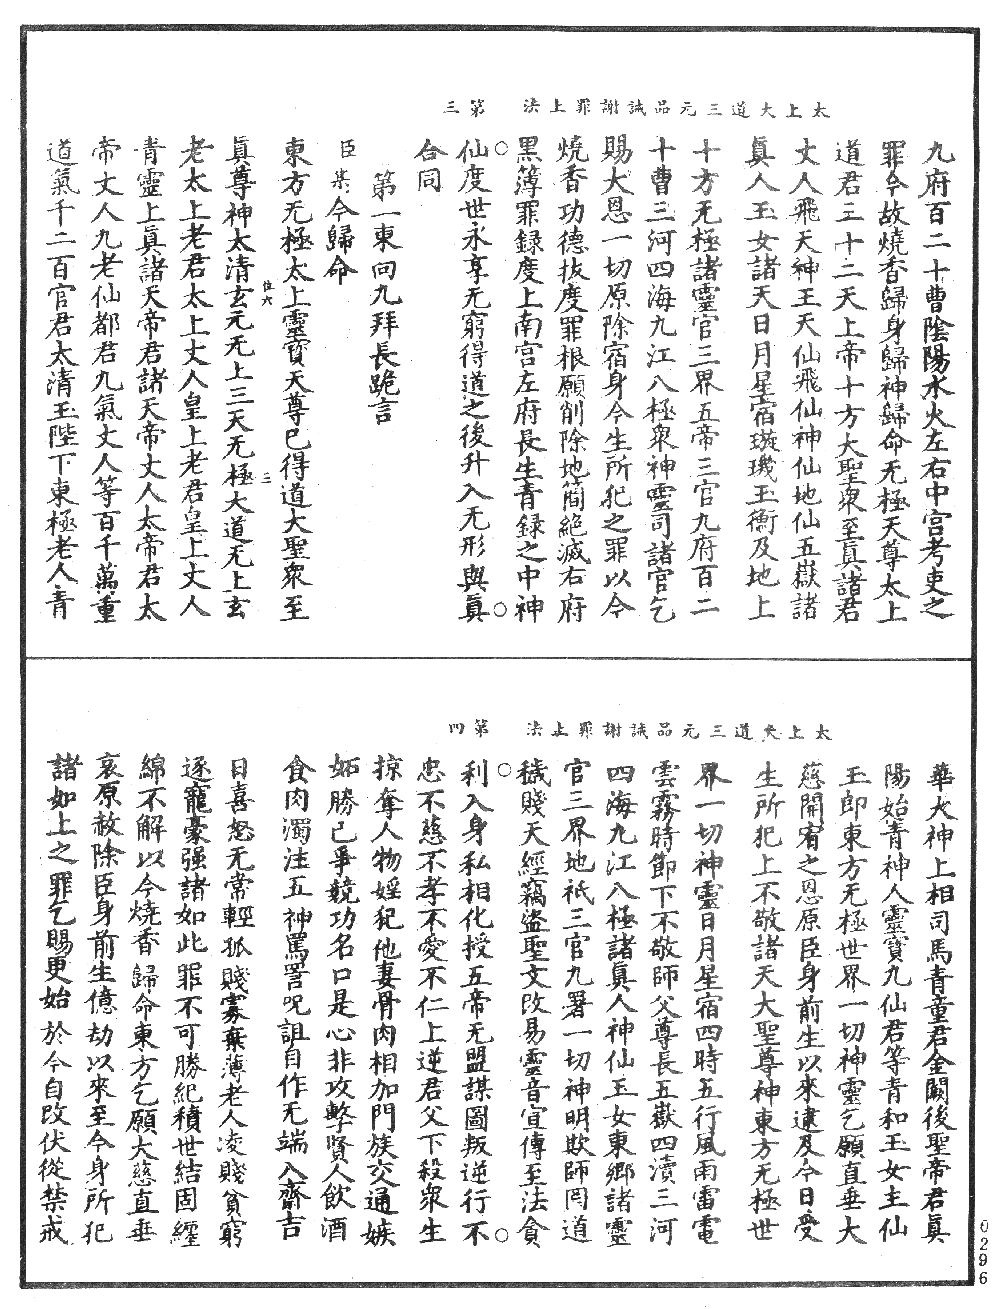 太上大道三元品誡謝罪上法　第三
九府百二十曹陰陽水火左右中宮考吏之
罪今故燒香歸身歸神歸命无極天尊太上
道君三十二天上帝十方大聖衆至真諸君
丈人飛天神王天仙飛仙神仙地仙五嶽諸
真人玉女諸天日月星宿璇璣玉衡及地上
十方无極諸靈官三界五帝三官九府百二
十曹三河四海九江八極衆神靈司諸官乞
賜大恩一切原除宿身今生所犯之罪以今
燒香功德拔度罪根願削除地簡絶滅右府
黑簿罪録度上南宮左府長生青録之中神
仙度世永享无窮得道之後升入无形與真
合同
第一東向九拜長跪言
臣某今歸命
東方无極太上靈寶天尊已得道大聖衆至
位六　三
真尊神太清玄元无上三天无極大道无上玄
老太上老君太上丈人皇上老君皇上丈人
青靈上真諸天帝君諸天帝丈人太帝君太
帝丈人九老仙都君九氣丈人等百千萬重
道氣千二百官君太清玉陛下東極老人青
太上大道三元品誡謝罪上法　第四
華大神上相司馬青童君金闕後聖帝君真
陽始青神人靈寶九仙君等青和玉女主仙
玉郎東方无極世界一切神靈乞願直垂大
慈開宥之恩原臣身前生以來逮及今日受
生所犯上不敬諸天大聖尊神東方无極世
界一切神靈日月星宿四時五行風雨雷電
雲霧時節下不敬師父尊長五嶽四瀆三河
四海九江八極諸真人神仙玉女東鄉諸靈
官三界地祇三官九署一切神明欺師罔道
穢賤天經竊盜聖文改易靈音宣傳至法貪
利入身私相化授五帝无盟謀圖叛逆行不
忠不慈不孝不愛不仁上逆君父下殺衆生
掠奪人物婬犯他妻骨肉相加門族交通嫉
妬勝己爭競功名口是心非攻擊賢人飲酒
食肉濁注五神罵詈呪詛自作无端入齋吉
日喜怒无常輕孤賤寡棄薄老人凌賤貧窮
逐寵豪强諸如此罪不可勝紀積世結固纏
綿不解以今燒香歸命東方乞願大慈直垂
哀原赦除臣身前生億劫以來至今身所犯
諸如上之罪乞賜更始於今自改伏從禁戒
0296